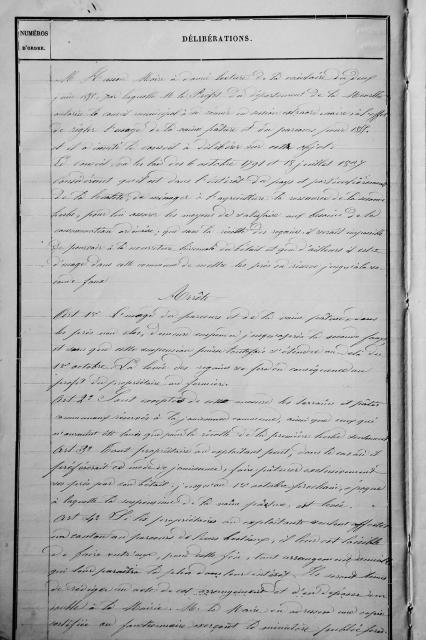 NUMÉROS
D'ORDRE.
DÉLIBÉRATIONS.
M. Husson Maire a donné lecture de la circulaire du deux
juin 185. par laquelle M. le Préfet du département de la Meurthe
autorise le conseil municipal à se réunir en session extraordinaire à l'effet
de régler l'usage de la vaine pâture et du parcours pour 185.
et il a invité le conseil à délibérer sur cet objet.
Le conseil, vu les lois des 6 octobre 1791 et 18 juillet 1837
Considérant qu'il est dans l'intérêt du pays et particulièrement
de la localité, de ménager à l'agriculture la ressource de la seconde
herbe, pour lui assurer les moyens de satisfaire aux besoins de la
consommation ordinaire, que sans la récolte des regains, il serait impossible
de pourvoir à la nourriture hivernale du bétail et que d'ailleurs il est
d'usage dans cette commune de mettre les prés en réserve jusqu'à la
faux
Arrête
Art. 1er L'usage du parcours et de la vaine pâture, dans
les prés non clos, demeure suspendu jusqu'après la seconde faux
et sans que cette suspension puisse toutefois s'étendre au delà du
1er octobre. La levée des regains se fera en conséquence au
profit du propriétaire ou fermier.
Art. 2e Sont exceptés de cette mesure les terrains et pâtis
communaux réservés à la jouissance commune, ainsi que ceux qui
n'auraient été loués que pour la récolte de la première herbe seulement
Art. 3e Tout propriétaire ou exploitant peut, dans le cas où il
préférerait ce mode de jouissance, faire pâturer exclusivement
ses prés par son bétail, jusqu'au 1er octobre prochain, époque
à laquelle la suspension de la vaine pâture, est levée.
Art. 4e Si les propriétaires ou exploitants veulent affecter
un canton au parcours de leurs bestiaux, il leur est loisible
de faire entr'eux, pour cette fois, tout arrangement amiable
qui leur paraîtra le plus dans leur intérêt. Ils seront tenus
de rédiger un acte de cet arrangement et d'en déposer un
double à la Mairie. M. le Maire en adressera une copie
certifiée au fonctionnaire exerçant le ministère public près